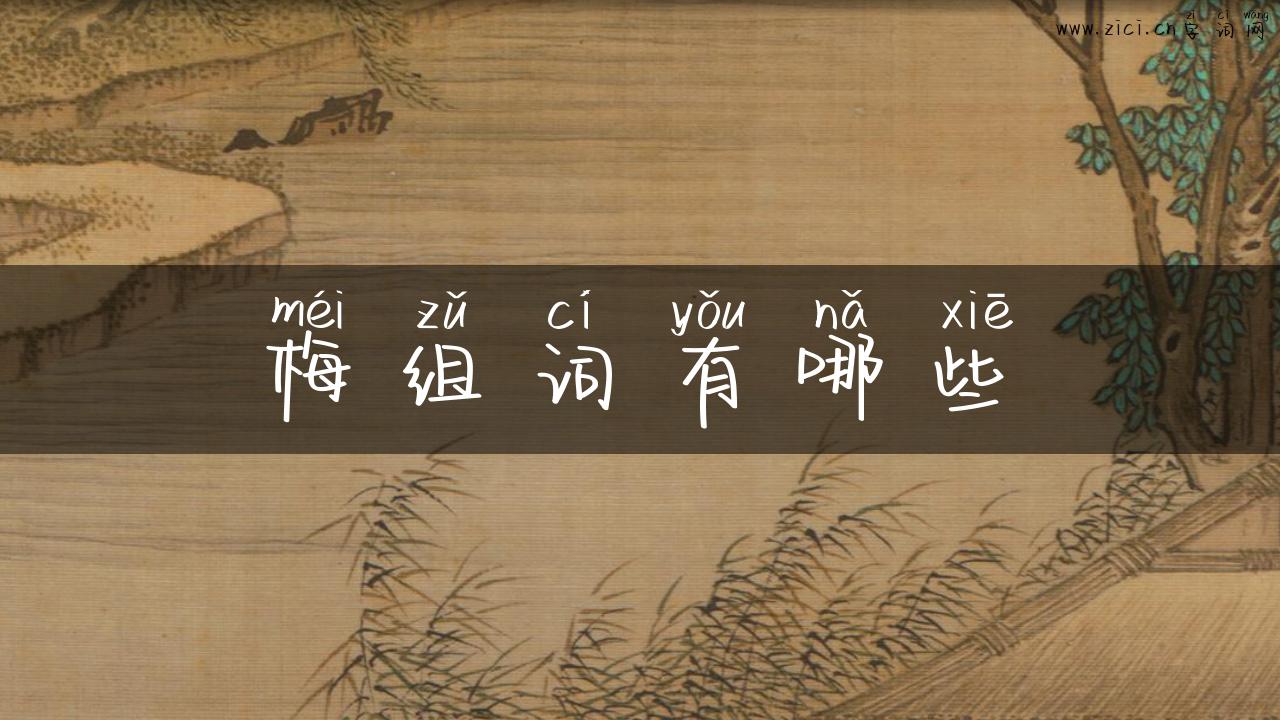 zì cí wǎng
www.zici.cn字词网
méi zǔ cí yǒu nǎ xiē
梅组词有哪些